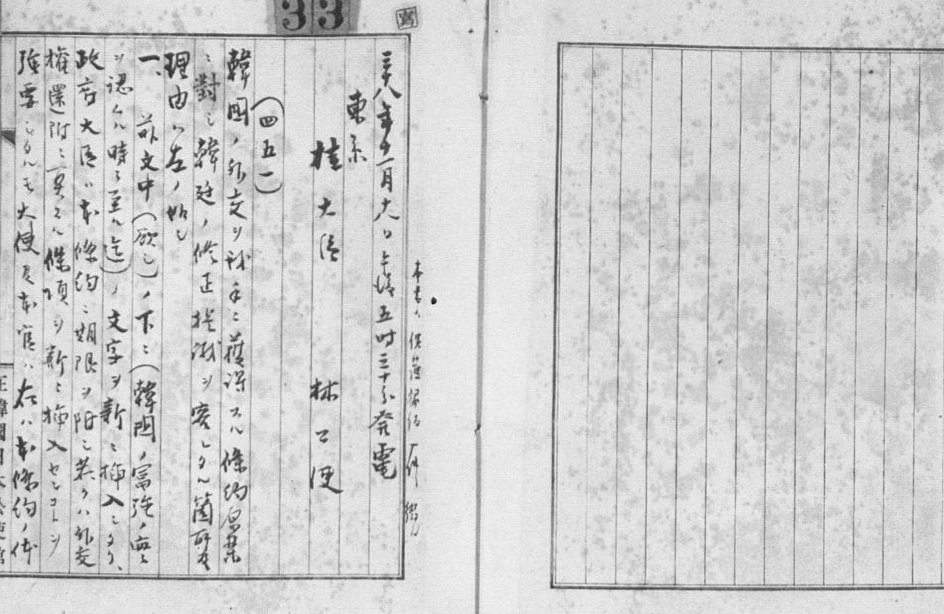 33
寫
本書ハ保護條約一件ノ綴リ
三十八年十一月十八日午後五時三十分發電
東京
桂大臣 林公使
(四五一)
韓國ノ外交ヲ我手ニ舊譯スル條約原案
ニ對シ韓廷ノ修正提議ヲ容レタル箇所及
理由ハ左ノ如シ
一、前文中(欲シ)ノ下ニ(韓國ノ富強ノ實
ヲ認ムル時ニ至ル迄)ノ文字ヲ新ニ挿入シタリ、
政府大臣ハ本條約ニ期限ヲ附シ若クハ外交
權還附ニ関スル條項ヲ新ニ挿入センコトヲ
強要シタルモ大使及本官ハ右ハ本條約ノ体
在韓國日本公使館